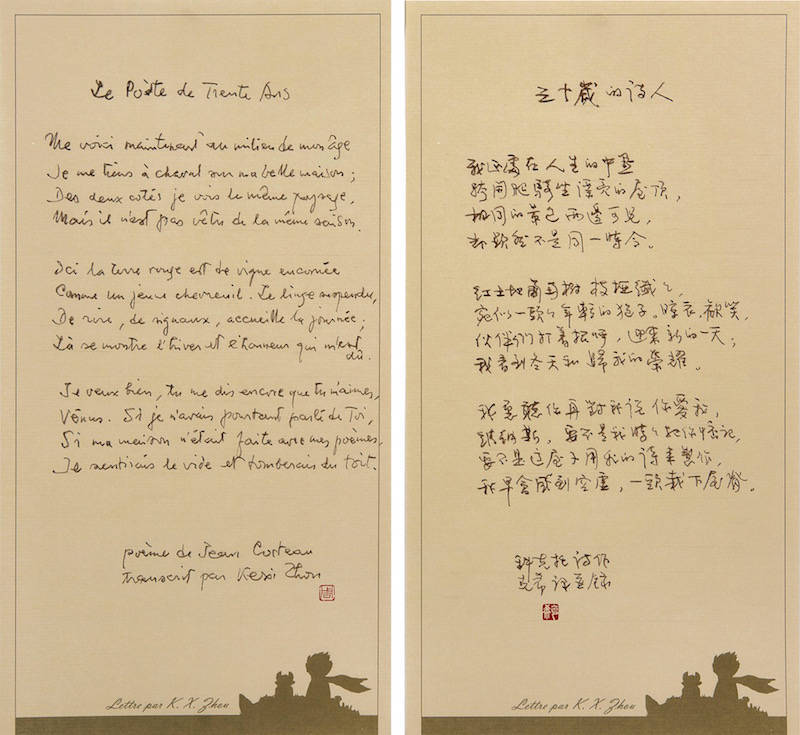 Le Poète de Trente Ans
Me voici maintenant au milieu de mon âge
Je me tiens à cheval sur ma belle maison;
Des deux cotés je vois le même paysage,
Mais il n'est pas vêtu de la même saison.
Ici la terre rouge est de vigne encornée
Comme un jeune chevreuil. Le linge suspendu,
De rire, de signaux, accueille la journée;
Là se montre l'hiver et l'honneur qui m'est
dû.
Je veux bien, tu me dis encore que tu m'aimes,
Vénus. Si je n'avais pourtant parlé de Toi,
Si ma maison n'était faite avec mes poèmes,
Je sentirais le vide et tomberais du toit.
poème de Jean Cocteau
transcrit par Kexi Zhou
周
Lettre par K. X. Zhou
三十歲的诗人
我还處在人生的中盘
跨開腿騎坐漂亮的屋顶,
相同的景色两邊可見,
却顯然不是同一時令。
紅土地葡萄樹枝桠纖々,
宛似一頭々年輕的狍子。晾衣,歡笑,
伙伴们打着招呼,迎来新的一天;
我看到冬天和歸我的榮耀。
我愿聽你再對我说你愛我,
維納斯,要不是我時々把你惦记,
要不是这屋子用我的诗来製作,
我早會感到空虚,一頭栽下屋脊。
科克托诗作
克希译並錄
Lettre par K. X. Zhou